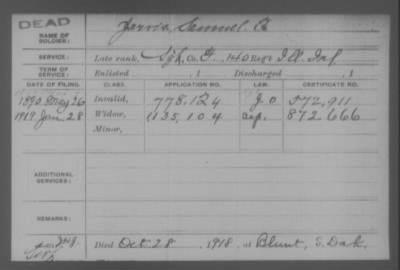 DEAD
NAME OF SOLDIER: Jarvis, Samuel
SERVICE: Late rank, Co. G, 140 Reg't Ill. Inf
TERM OF SERVICE: Enlisted , 1 Discharged , 1
DATE OF FILING. CLASS. APPLICATION NO. LAW. CERTIFICATE NO.
1890 May 26 Invalid, 778,124 572,911
1919 Jan. 28 Widow, 1135,104 872,666
Minor,
ADDITIONAL SERVICES:
REMARKS:
Died Oct 28 , 1918, at Blunt, S. Dak.